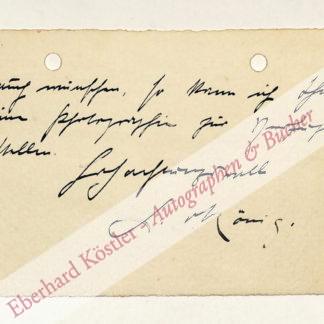 auch wünschen, so kann ich Ihnen
eine Photographie zur
stellen.
Hochachtungsvoll
König.
Eberhard Köstler - Autographen & Bücher